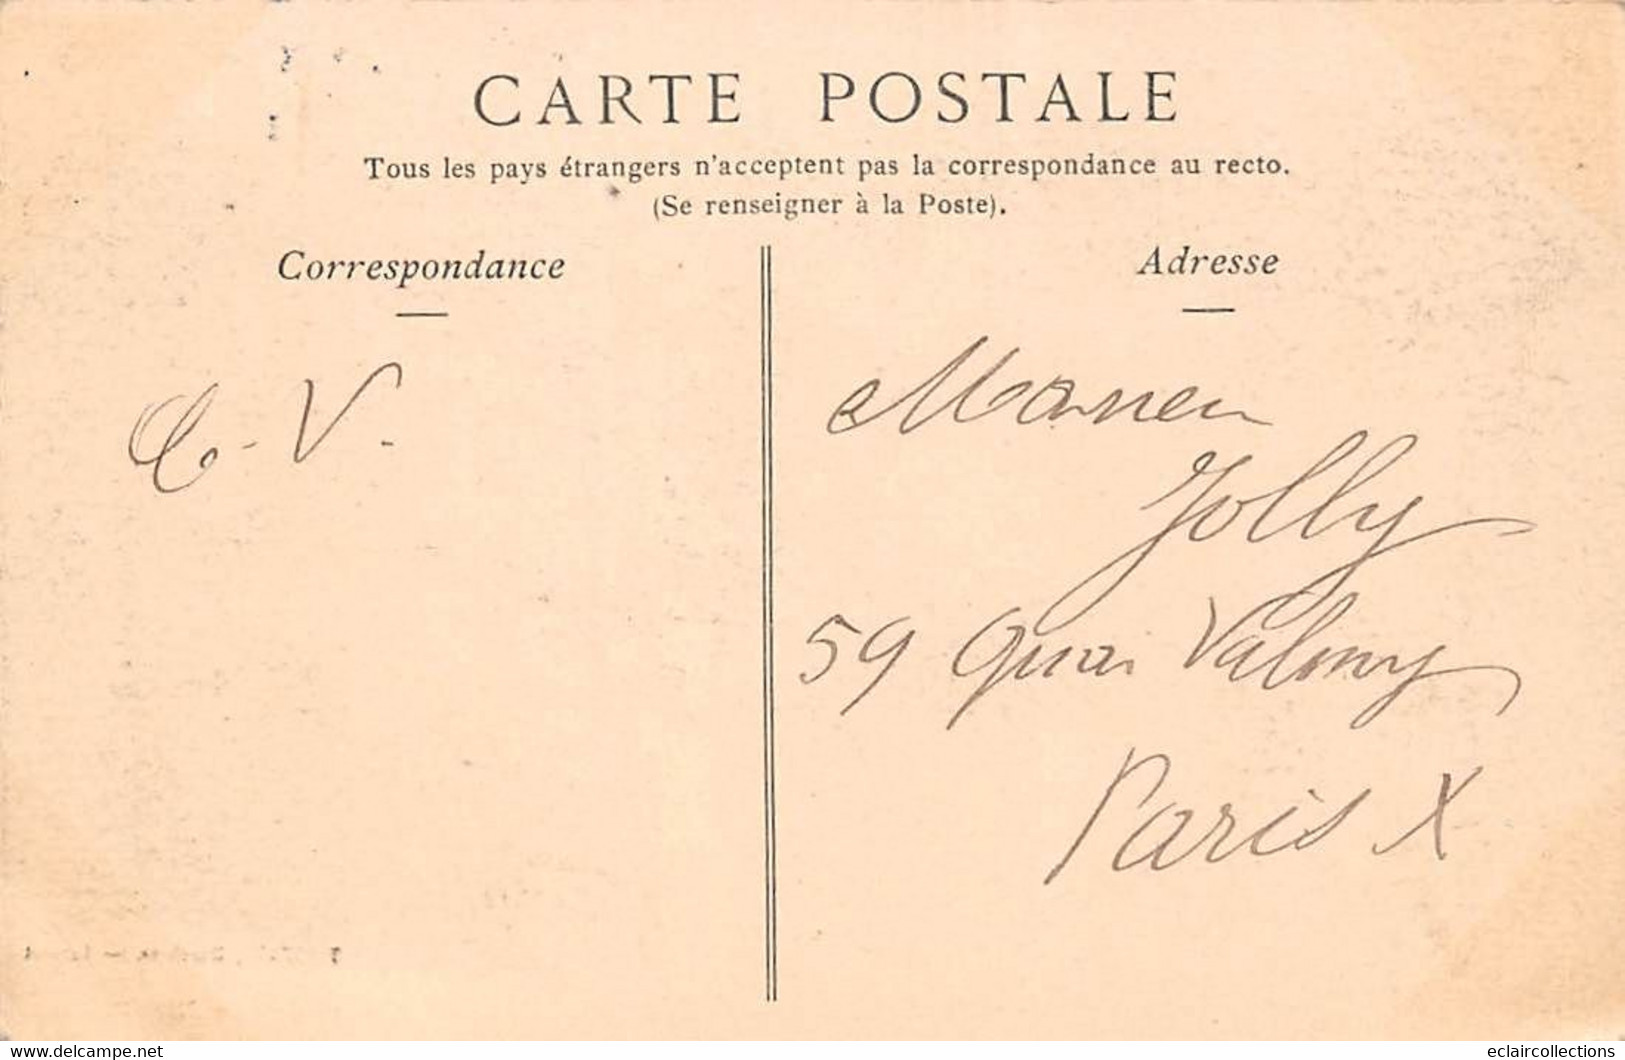 CARTE POSTALE
Tous les pays étrangers n'acceptent pas la correspondance au recto.
(Se renseigner à la Poste).
Correspondance
Adresse
C-V.
Jolly
59 Quai Valmy
Paris X
delcampe.net
eclaircollections